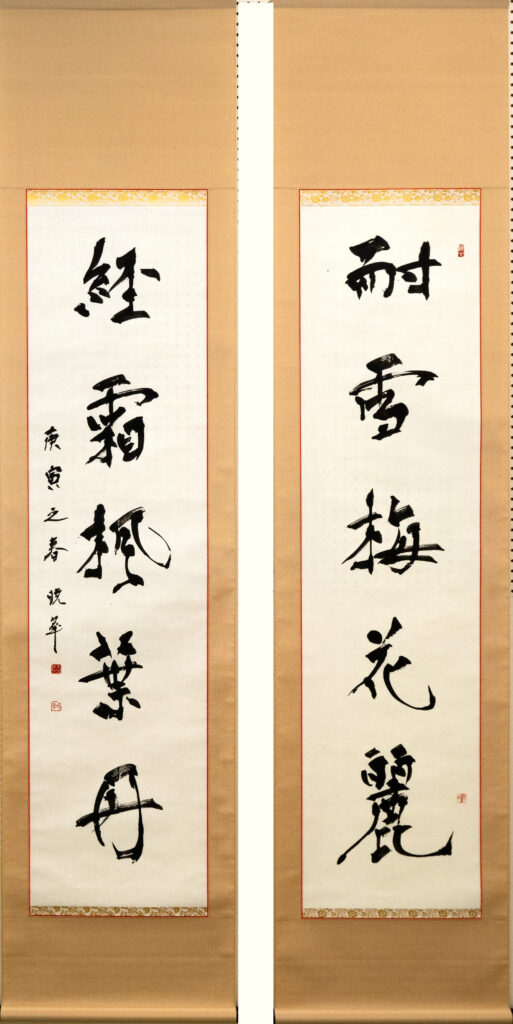 耐雪梅花麗
経霜楓葉丹
庚寅之春 暁華